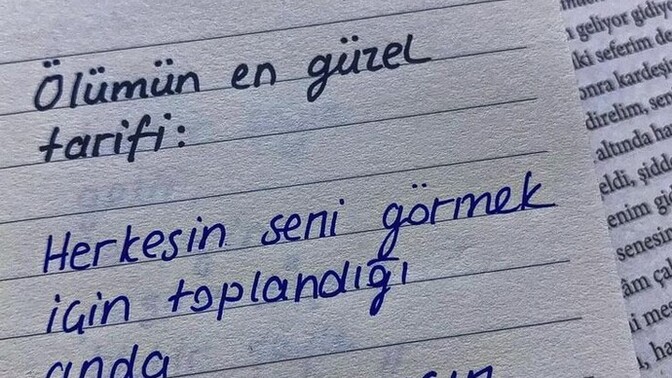 Ölümün en güzel
tarifi:
Herkesin seni görmek
için toplandığı
anda
geliyor gidiyo
iki seferim de
onra kardeşi
direlim, sen
altında bu
eldi, şidd
enim gi
senesin
âm çal